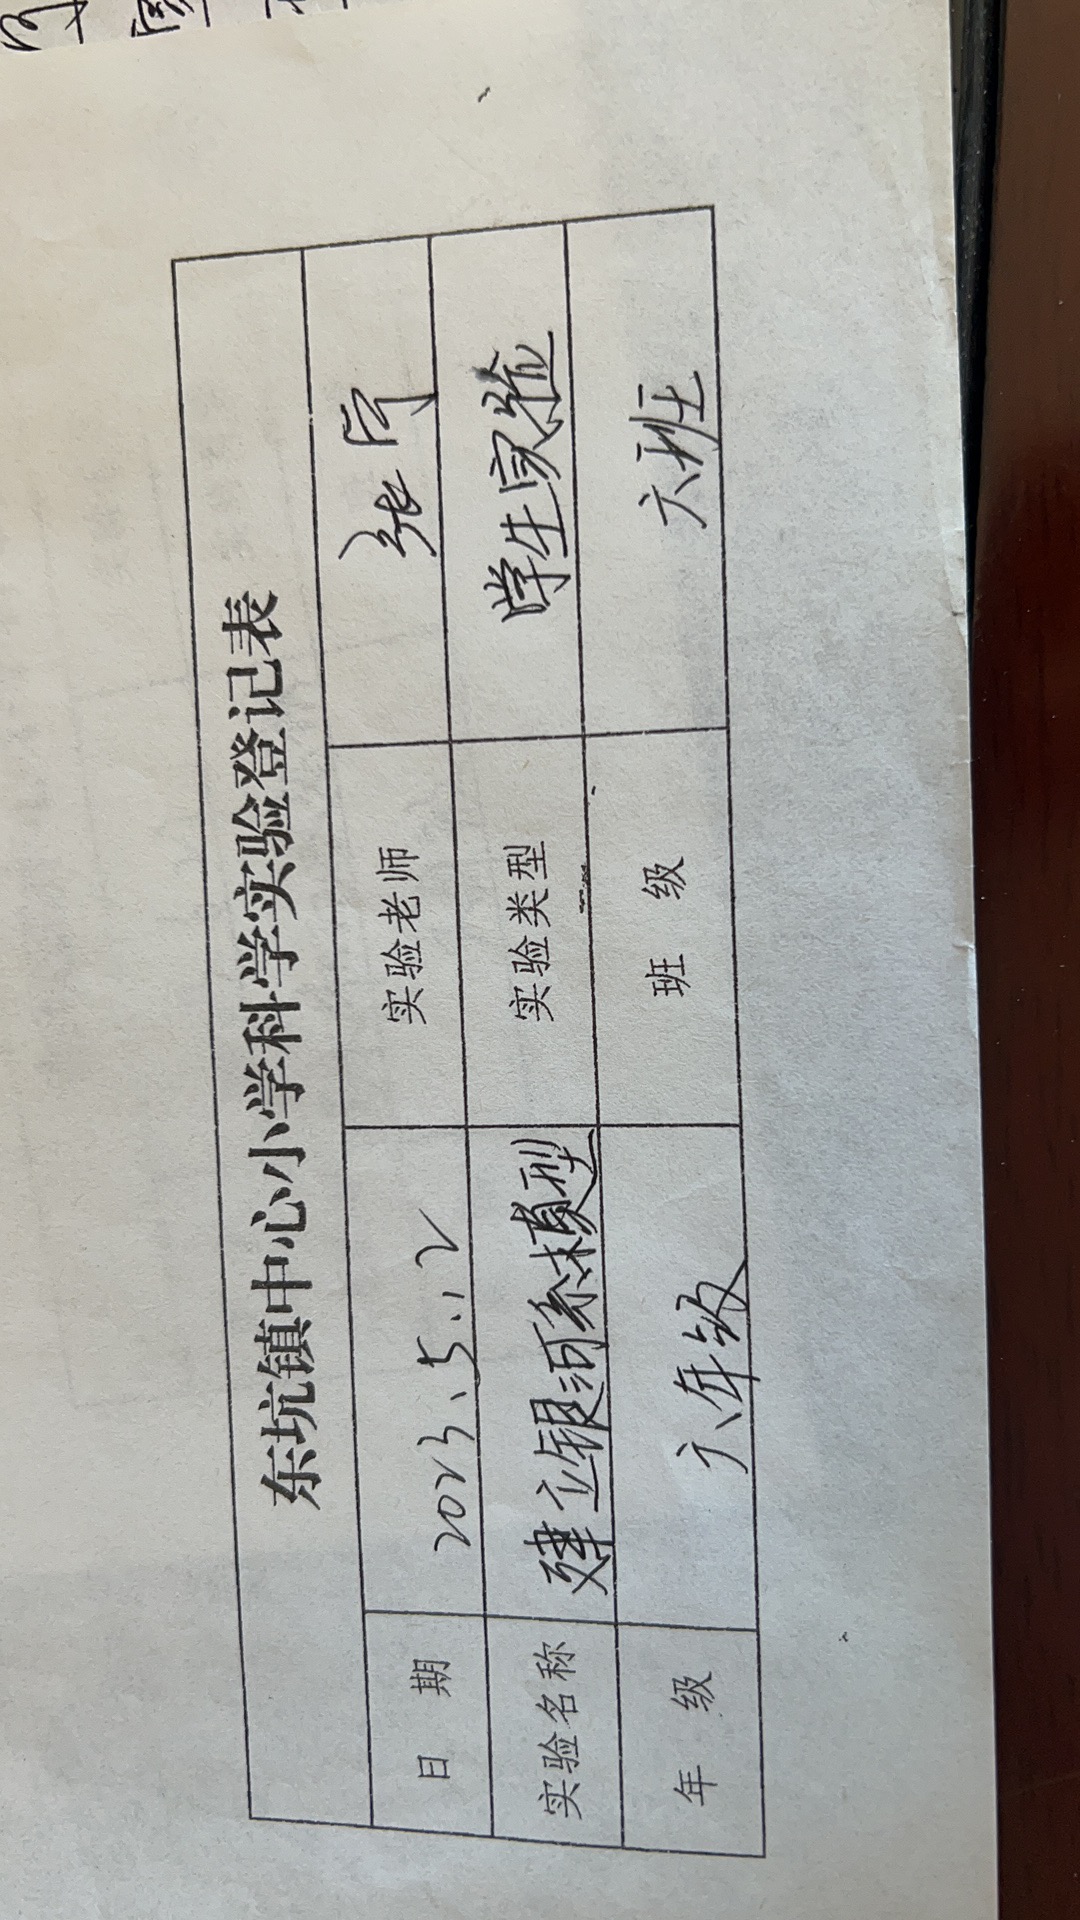 东坑镇中心小学科学实验登记表
日 期 2023.5.12 实验老师 张
实验名称 建立银河系模型 实验类型 学生实验
年 级 六年级 班 级 六班